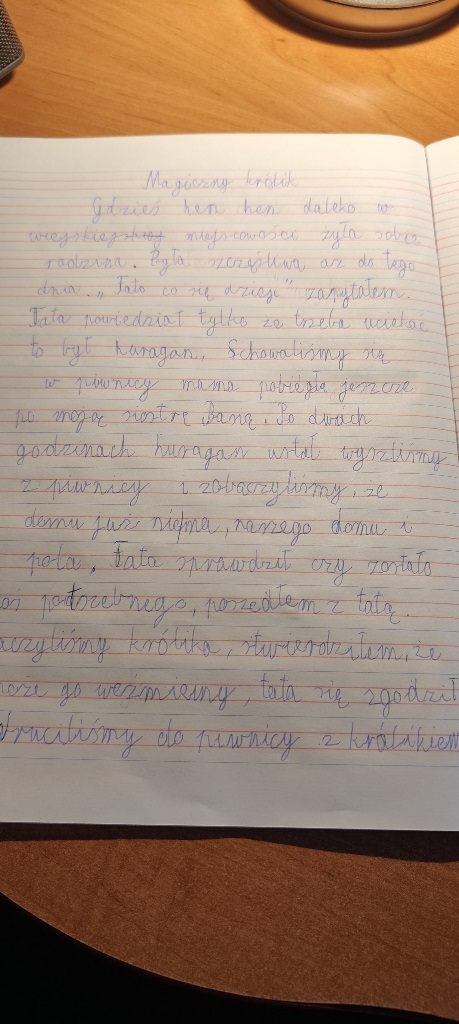 Magiczny królik
Gdzieś hen hen daleko w
miejscowości żyła sobie
rodzina. Była szczęśliwa aż do tego
dnia. „Tato co się dzieje" zapytałem.
Tata powiedział tylko że trzeba uciekać
to był huragan. Schowaliśmy się
w piwnicy mama pobiegła jeszcze
po moją siostrę Po dwóch
godzinach huragan ustał wyszliśmy
z piwnicy i zobaczyliśmy, że
domu już niema, naszego domu i
pola, Tata sprawdził czy zostało
oś potrzebnego, poszedłem z tatą.
aczyliśmy królika, stwierdziłem, że
może go weźmiemy, tata się zgodził
róciliśmy do piwnicy z królikiem